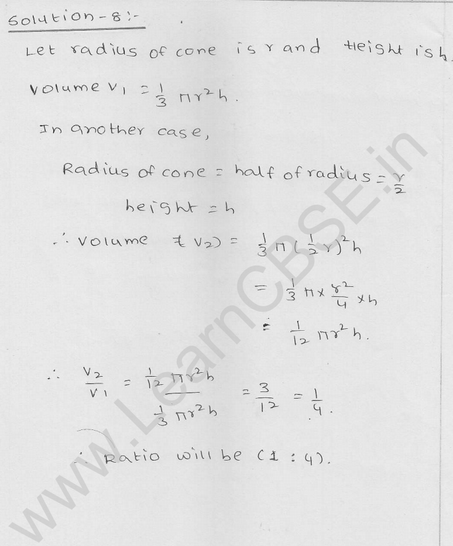 Solution-8:-
Let radius of cone is r and Height is h.
Volume V₁ = 1/3 πr²h.
In another case,
Radius of cone = half of radius = r/2
height = h
∴ Volume (V₂) = 1/3 π(1/2 r)²h
= 1/3 π × r²/4 × h
= 1/12 πr²h.
∴ V₂/V₁ = 1/12 πr²h / 1/3 πr²h = 3/12 = 1/4.
∴ Ratio will be (1:4).
www.LearnCBSE.in